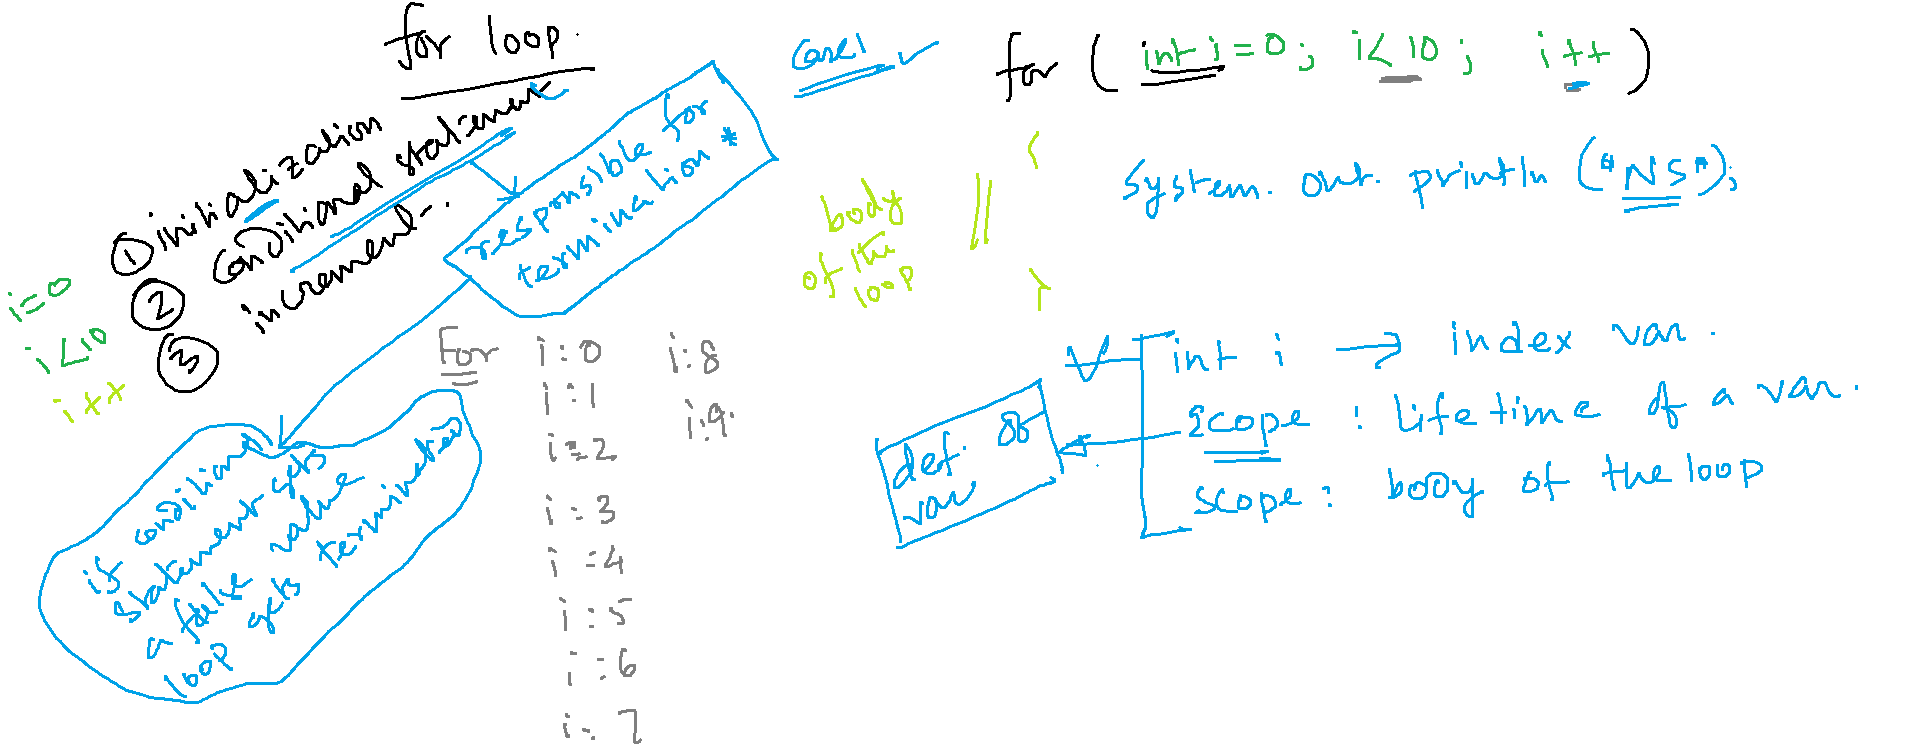 for loop.
① initialization
② conditional statement
③ increment.
i=0
i<10
i++
responsible for
termination *
if conditional
statement gets
a false value
loop gets terminated
For
i:0
i:1
i=2
i:3
i:4
i:5
i:6
i:7
i:8
i:9.
Case1
for ( int i=0; i<10; i++ )
{
System.out.println("NS");
}
body
of the
loop
int i → index var.
scope : lifetime of a var.
scope : body of the loop
def.
var